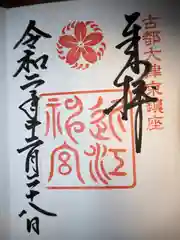 古都大津京鎮座
奉拝
近江
神宮
令和二年十一月二十八日